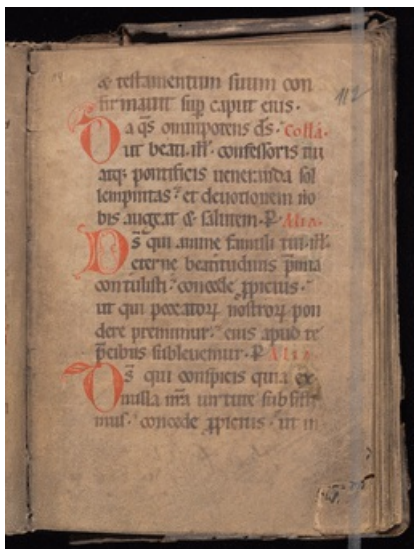 & testamentum suum con
firmauit sup caput eius.
Da q̄s omnipotens d̄s. Collā.
ut beati .ill̄. confessoris tui
atq; pontificis ueneranda sol
lempnitas. et deuotionem no
bis augeat & salutem. P Alia.
Ds̄ qui anime famuli tui .ill̄.
eterne beatitudinis p̄mia
contulisti. concede ꝓpicius.
ut qui peccatoꝝ nostroꝝ pon
dere premimur. eius apud te
p̄cibus subleuemur. P Alia.
Ds̄ qui conspicis quia ex
nulla nr̄a uirtute subsisti
mus. concede ꝓpicius. ut in
112